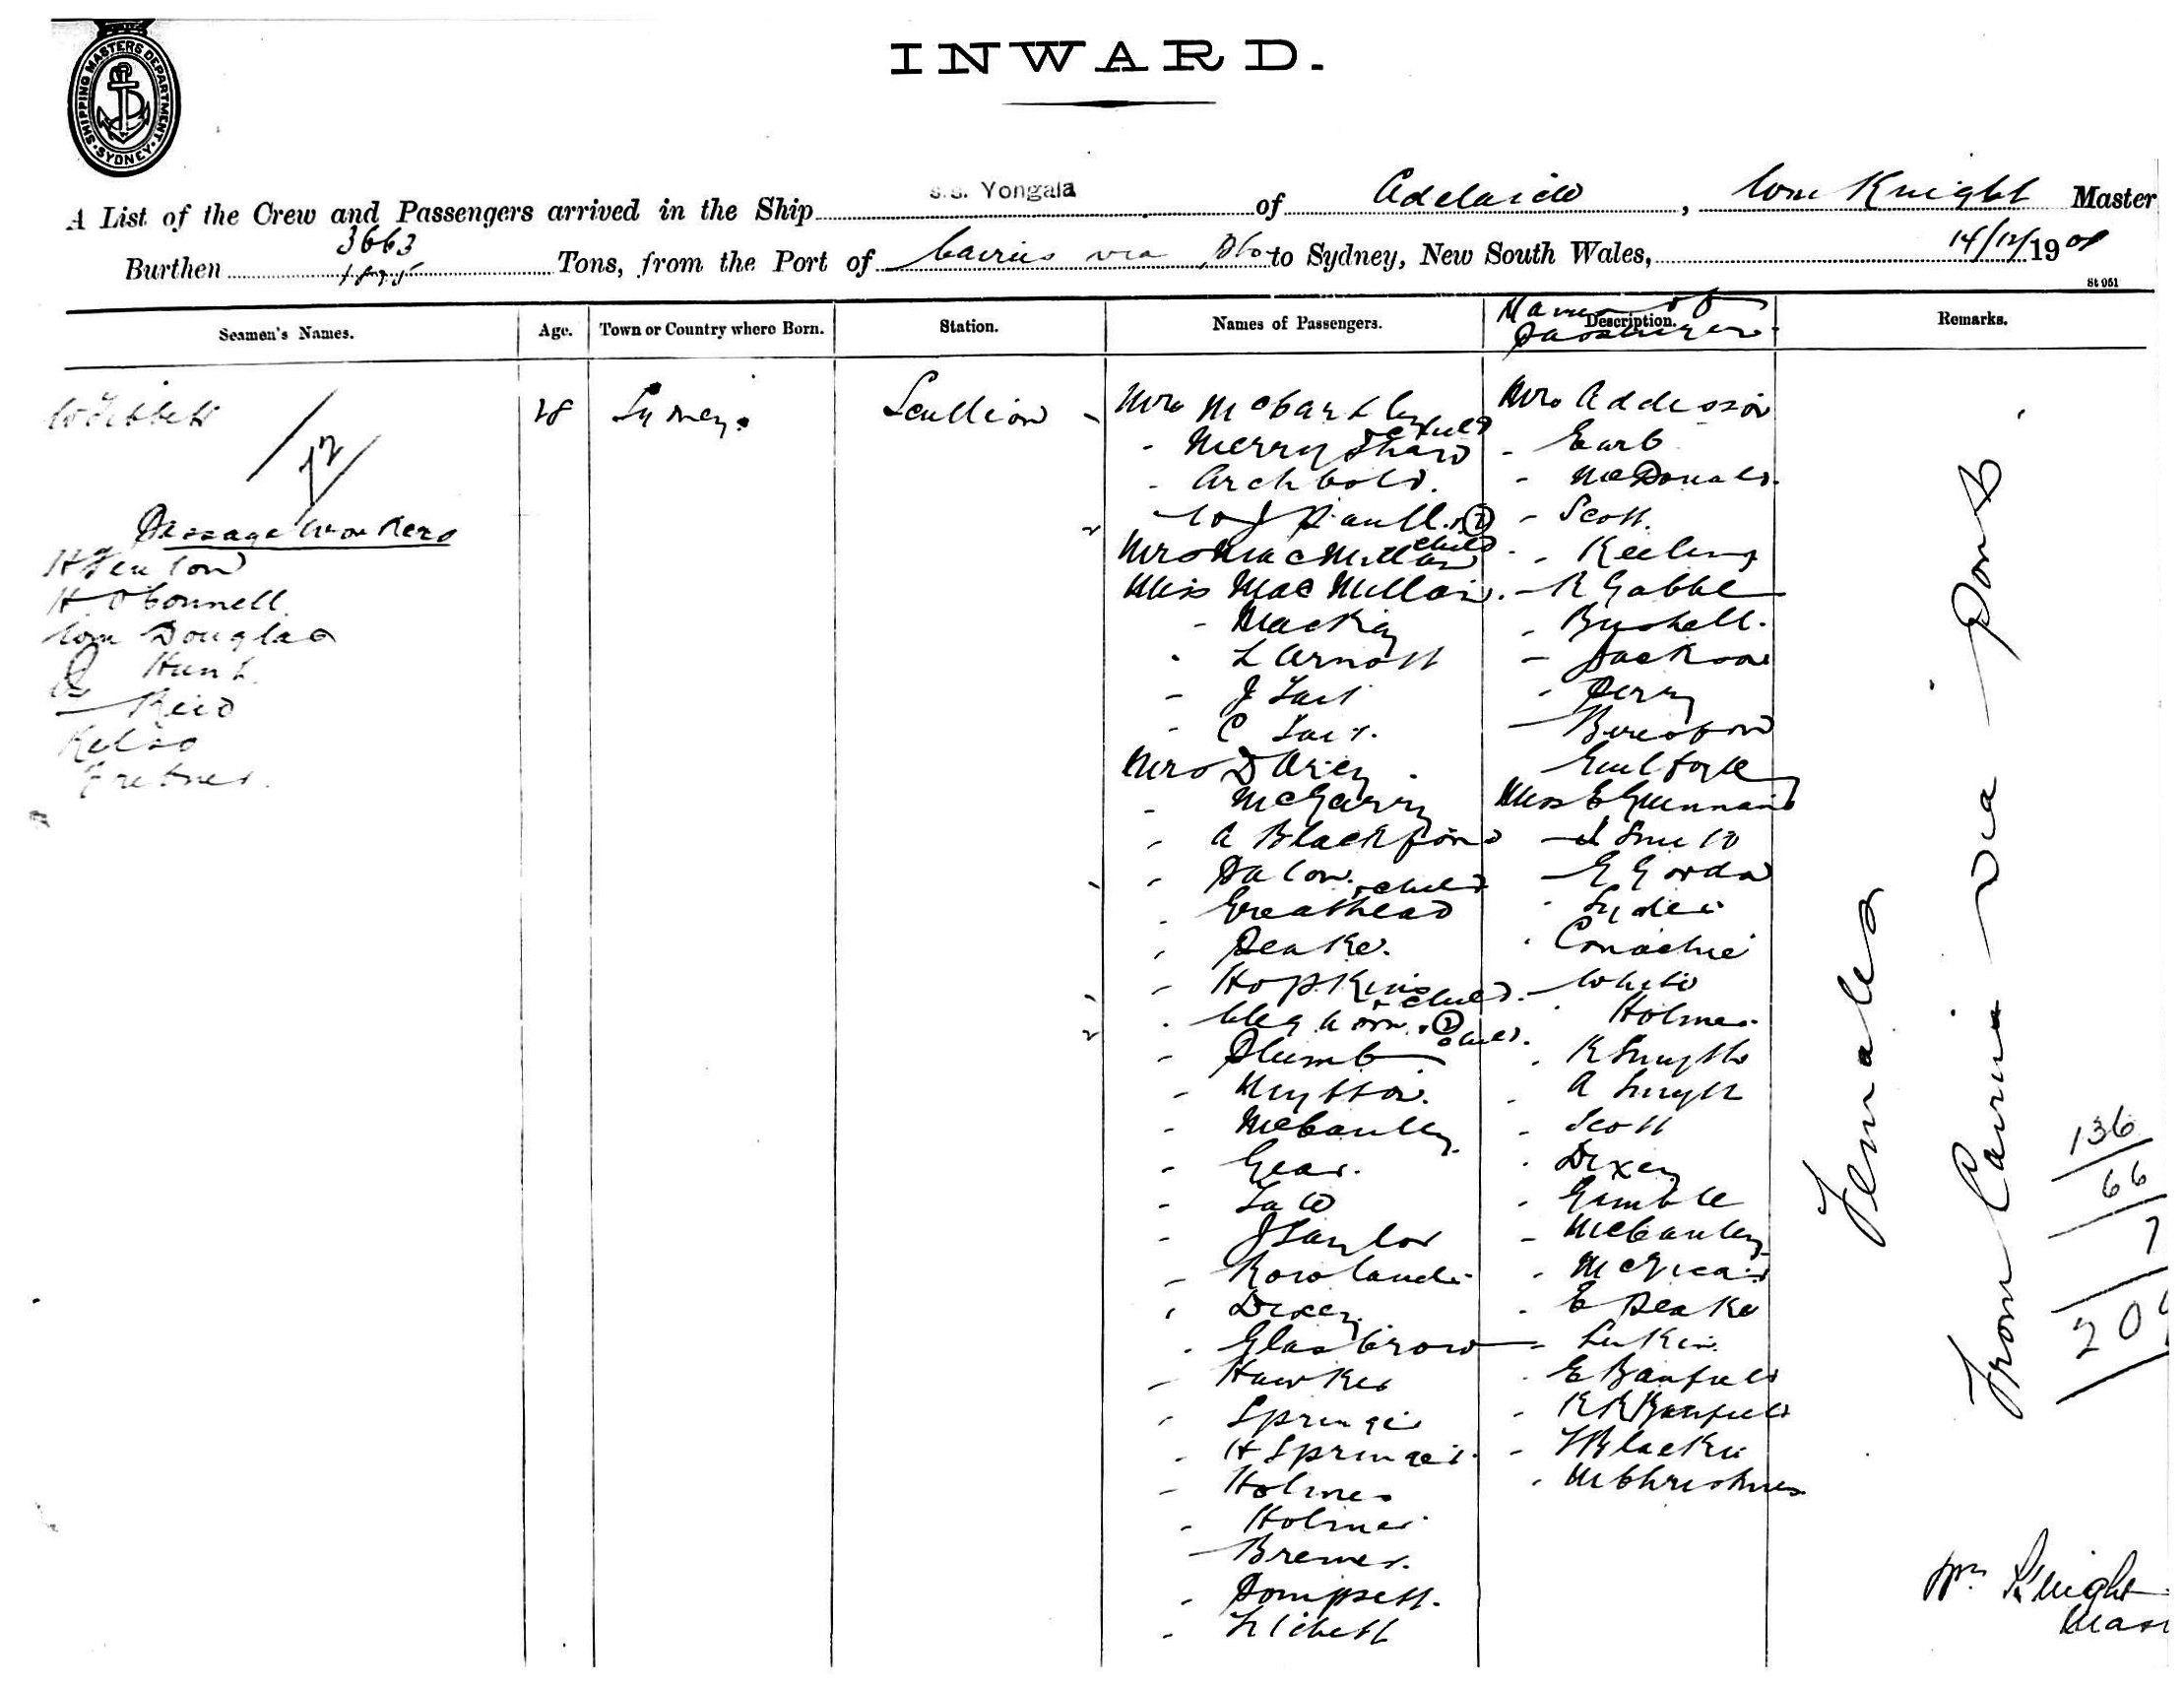 SHIPPING MASTERS DEPARTMENT · SYDNEY ·
INWARD.
A List of the Crew and Passengers arrived in the Ship s.s. Yongala of Adelaide, Wm Knight Master
Burthen 3663 Tons, from the Port of Cairns via to Sydney, New South Wales, 14/12/19
1825
St 051
Seamen's Names.
Age.
Town or Country where Born.
Station.
Names of Passengers.
Description.
Names of Passengers
Remarks.
28
Sydney.
Scullion
1/12
Passage Workers
H Fenton
H. O'Connell.
Wm Douglas
Hunt.
Reid
Kelso
Mrs McCarthy
& child
- Merry Shaw
- Archbold.
- W J Paull. & ②
child
Mrs MacMillan
Miss MacMillan.
- Mackay
- L Arnott
- J Tait
- C Tait.
Mrs D'Arcy
- McGarry
- A Blackford
- Paton.
& child
- Greathead
- Peake.
- Hopkins
& child.
- Cleghorn. & ②
child.
- Plumb
- Mytton.
- McCauley.
- Gear.
- J Taylor
- Rowlands
- Dixey
- Glasbrow
- Hawkes
- Springer
- H Springer.
- Holmes
- Holmes
- Bremer.
- Dompsett.
Mrs Addison
- Earl
- McDonald.
- Scott.
- Keeling
- R Gabbe
- Bushell.
- Jackson
- Perry
- Beresford
Miss E Grennan
- E Gordon
- Conachie
- White
Holmes
- R Smythe
- A Smyth
- Scott
- Dixey
- Gamble
- McCauley
- McVicar
- E Peake
- Lukin.
- E Banfield
- R R Banfield
- J Blackie
- M Christmas
Females
From Cairns via ports
136
66
7
20
Wm Knight
Mas